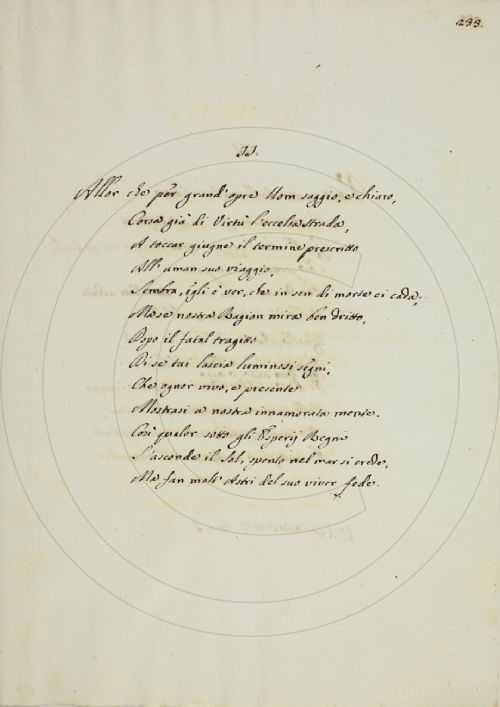 233.
II.
Allor che per grand' opre Uom saggio, e chiaro,
Corsa già di Virtù l'eccelsa strada,
A toccar giugne il termine prescritto
All' uman suo viaggio,
Sembra, egli è ver, che in sen di morte ei cada;
Ma se nostra Ragion mira ben dritto,
Dopo il fatal tragitto
Di se tai lascia luminosi segni,
Che ognor vivo, e presente
Mostrasi a nostra innamorata mente.
Così qualor sotto gli Esperij Regni
S'asconde il Sol, spento nel mar si crede,
Ma fan molt' Astri del suo viver fede.